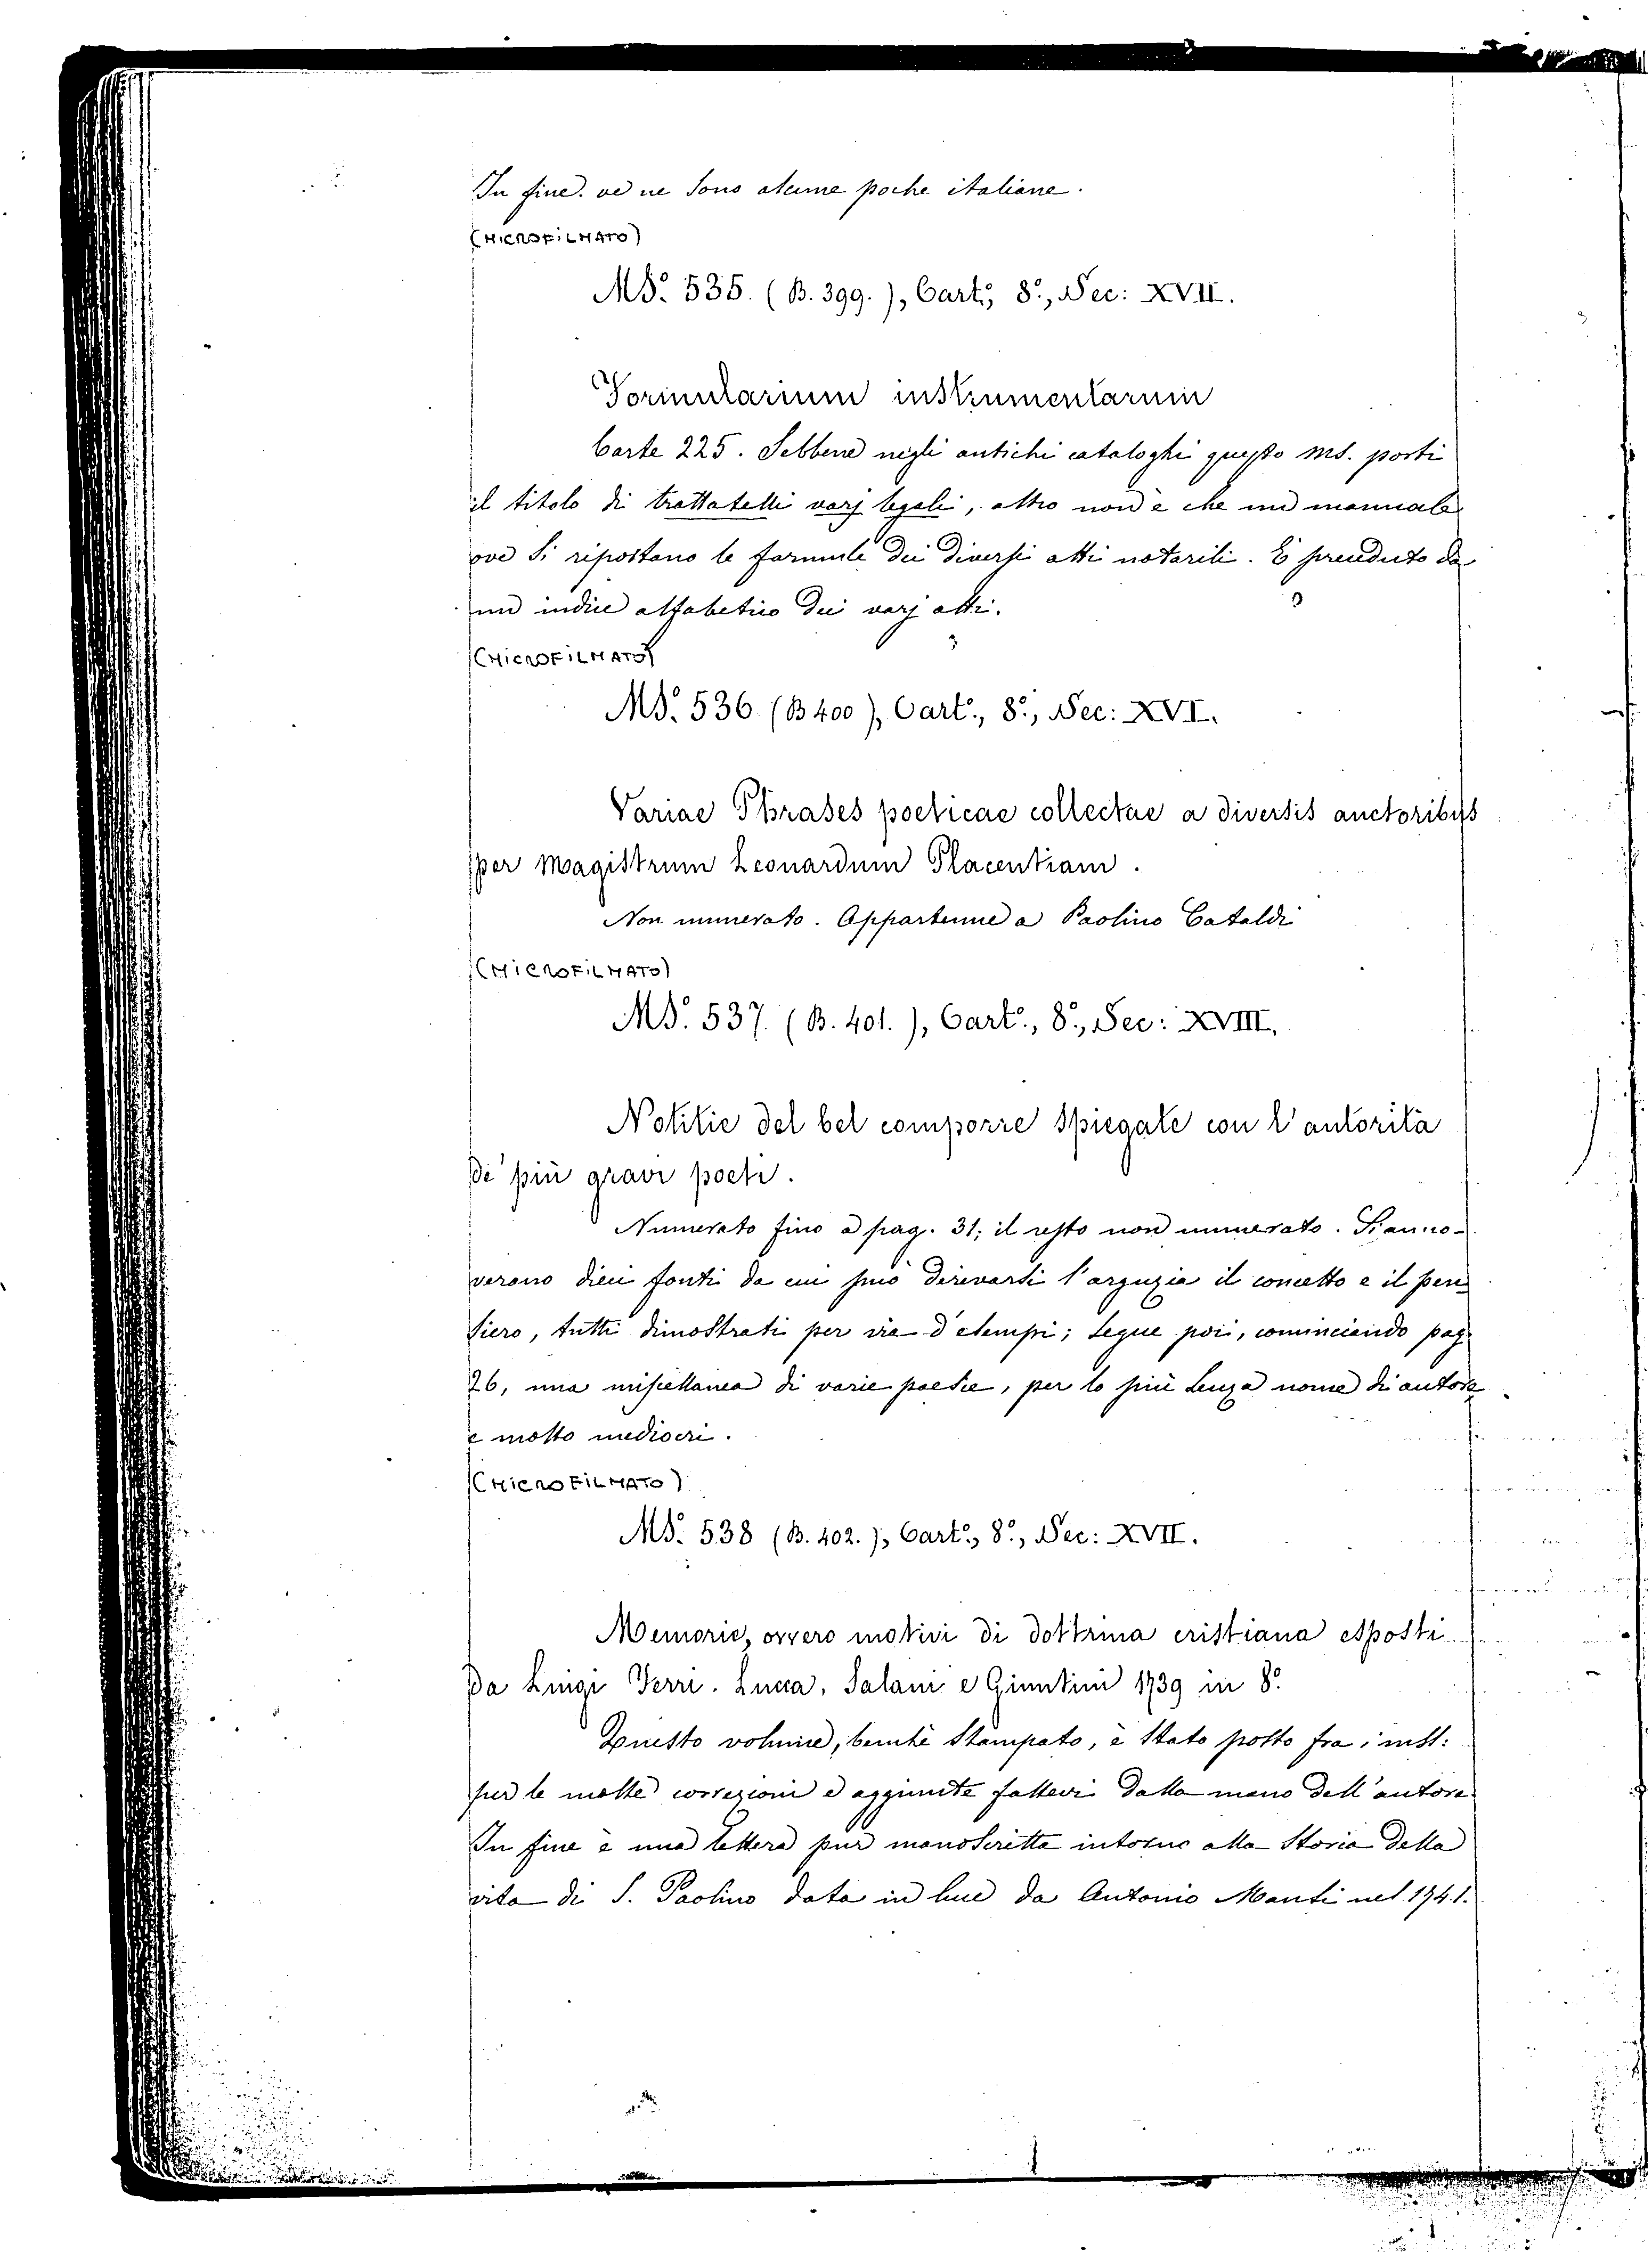 In fine. ve ne sono alcune poche italiane.
(MICROFILMATO)
MS. 535. (B. 399.), Cart.°, 8.°, Sec: XVII.
Formularium instrumentarum
Carte 225. Sebbene negli antichi cataloghi questo ms. porti
il titolo di trattatelli varj legali, altro non è che un manuale
ove si riportano le formule dei diversi atti notarili. È preceduto da
un indice alfabetico dei varj atti.
(MICROFILMATO)
MS. 536 (B 400), Cart.°, 8.°, Sec: XVI.
Variae Phrases poeticae collectae a diversis auctoribus
per Magistrum Leonardum Placentiam.
Non numerato. Appartenne a Paolino Cataldi
(MICROFILMATO)
MS. 537. (B. 401.), Cart.°, 8.°, Sec: XVIII.
Notitie del bel comporre spiegate con l'autorità
de' più gravi poeti.
Numerato fino a pag. 31; il resto non numerato. Si anno-
verano dieci fonti da cui può derivarsi l'arguzia il concetto e il pen
siero, tutti dimostrati per via d'esempi; segue poi, cominciando pag.
26, una miscellanea di varie poesie, per lo più senza nome di autore
e molto mediocri.
(MICROFILMATO)
MS. 538 (B. 402.), Cart.°, 8.°, Sec: XVII.
Memorie, ovvero motivi di dottrina cristiana esposti
da Luigi Ferri. Lucca, Salani e Giuntini 1739 in 8.°
Questo volume, benchè stampato, è stato posto fra i mss:
per le molte correzioni e aggiunte fattevi dalla mano dell'autore
In fine è una lettera pur manoscritta intorno alla Storia della
vita di S. Paolino data in luce da Antonio Manti nel 1741.